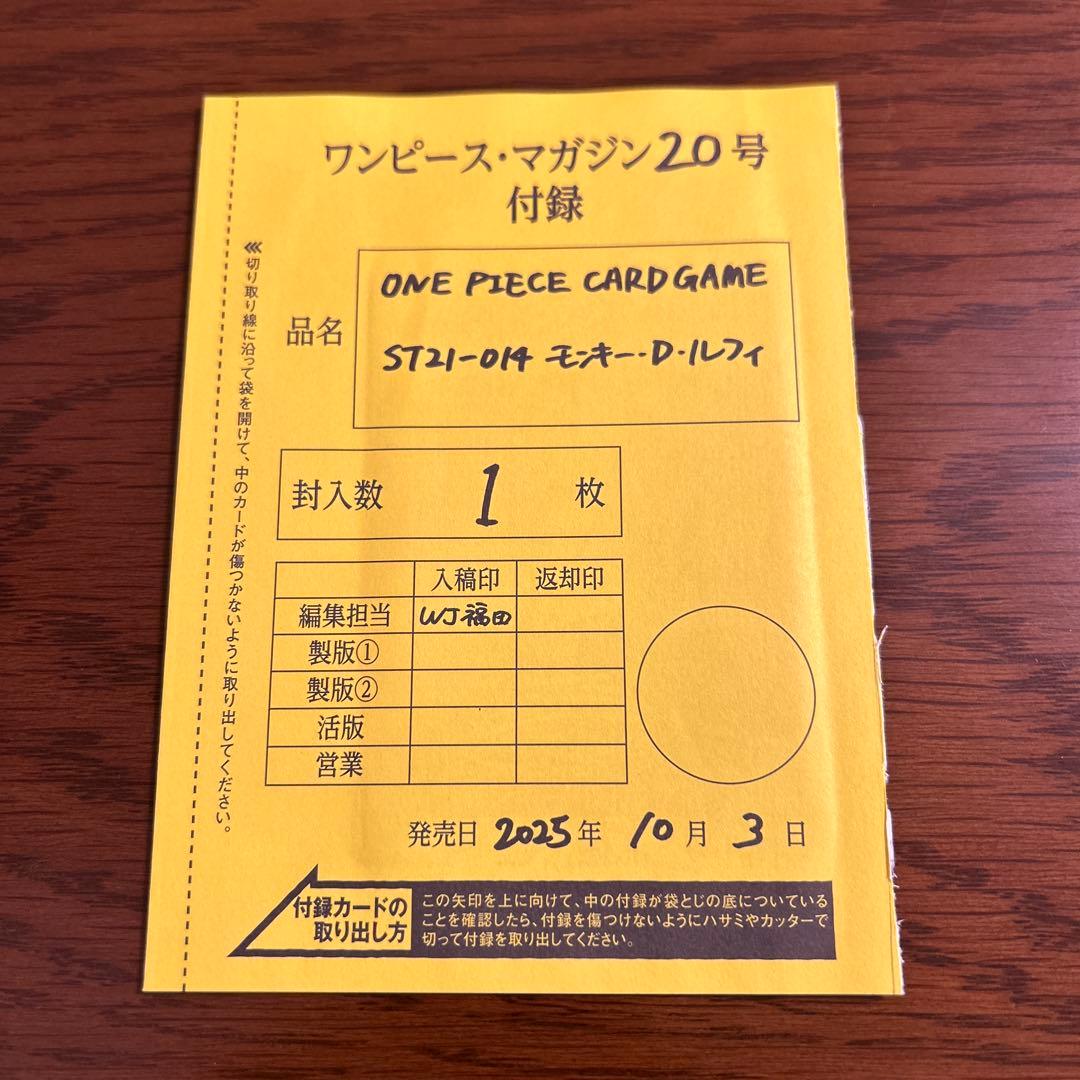 ワンピース・マガジン20号
付録
品名
ONE PIECE CARD GAME
ST21-014 モンキー・D・ルフィ
封入数 1 枚
入稿印 返却印
編集担当 WJ福田
製版①
製版②
活版
営業
発売日 2025年 10月 3日
付録カードの
取り出し方
この矢印を上に向けて、中の付録が袋とじの底についている
ことを確認したら、付録を傷つけないようにハサミやカッターで
切って付録を取り出してください。
⋘切り取り線に沿って袋を開けて、中のカードが傷つかないように取り出してください。